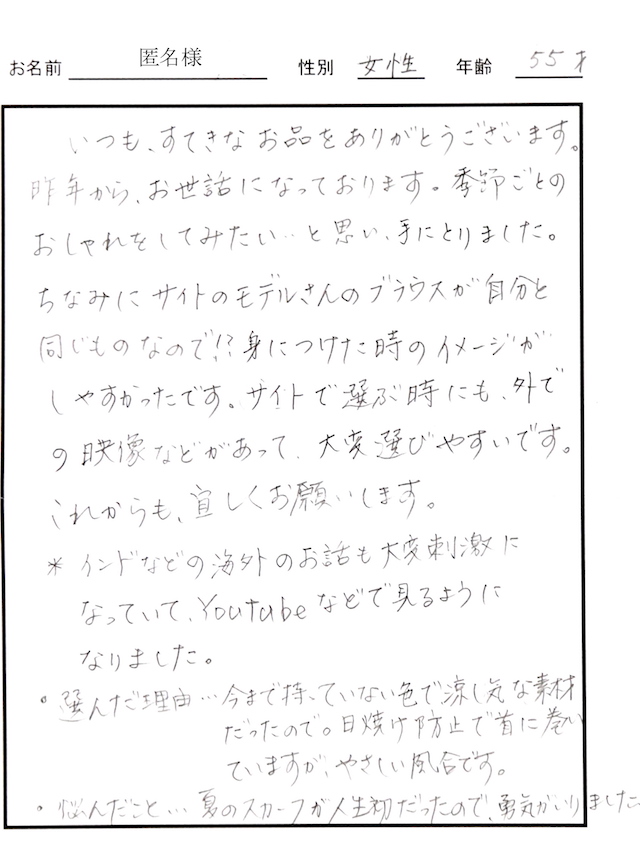 お名前 匿名様 性別 女性 年齢 55才
いつも、すてきなお品をありがとうございます。
昨年から、お世話になっております。季節ごとの
おしゃれをしてみたい‥と思い、手にとりました。
ちなみにサイトのモデルさんのブラウスが自分と
同じものなので!?身につけた時のイメージが
しやすかったです。サイトで選ぶ時にも、外で
の映像などがあって、大変選びやすいです。
これからも、宜しくお願いします。
* インドなどの海外のお話も大変刺激に
なっていて、Youtubeなどで見るように
なりました。
・選んだ理由…今まで持っていない色で涼し気な素材
だったので。日焼け防止で首に巻い
ていますが、やさしい風合です。
・悩んだこと…夏のスカーフが人生初だったので、勇気がいりました。